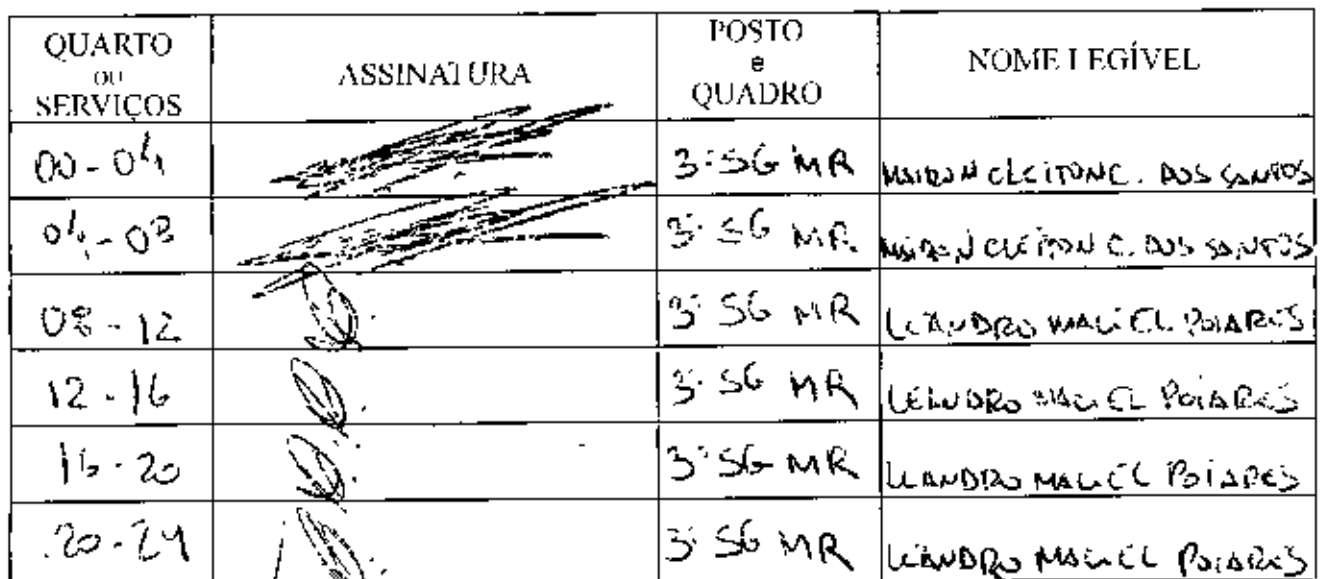 QUARTO
OU
SERVIÇOS
ASSINATURA
POSTO
e
QUADRO
NOME LEGÍVEL
00 - 04 3º SG MR MAIRON CLEITON C. DOS SANTOS
04 - 08 3º SG MR. MAIRON CLEITON C. DOS SANTOS
08 - 12 3º SG MR LEANDRO MACIEL POIARES
12 - 16 3º SG MR LEANDRO MACIEL POIARES
16 - 20 3º SG MR LEANDRO MACIEL POIARES
20 - 24 3º SG MR LEANDRO MACIEL POIARES